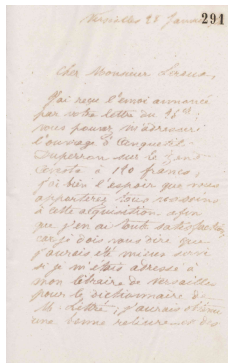 Versailles 28 Janv 291
Cher Monsieur Leroux,
J'ai reçu l'envoi annoncé
par votre lettre du 26 ct
vous pouvez m'adresser
l'ouvrage d'Anquetil
Duperron sur le Zend
Avesta à 120 francs,
j'ai bien l'espoir que vous
apporterez tous vos soins
à cette acquisition afin
que j'en ai tout satisfaction
car je dois vous dire que
j'aurais été mieux servi
si je m'étais adressé à
mon libraire de Versailles
pour le dictionnaire de
M. Littré, j'aurais obtenu
une bonne reliure et des